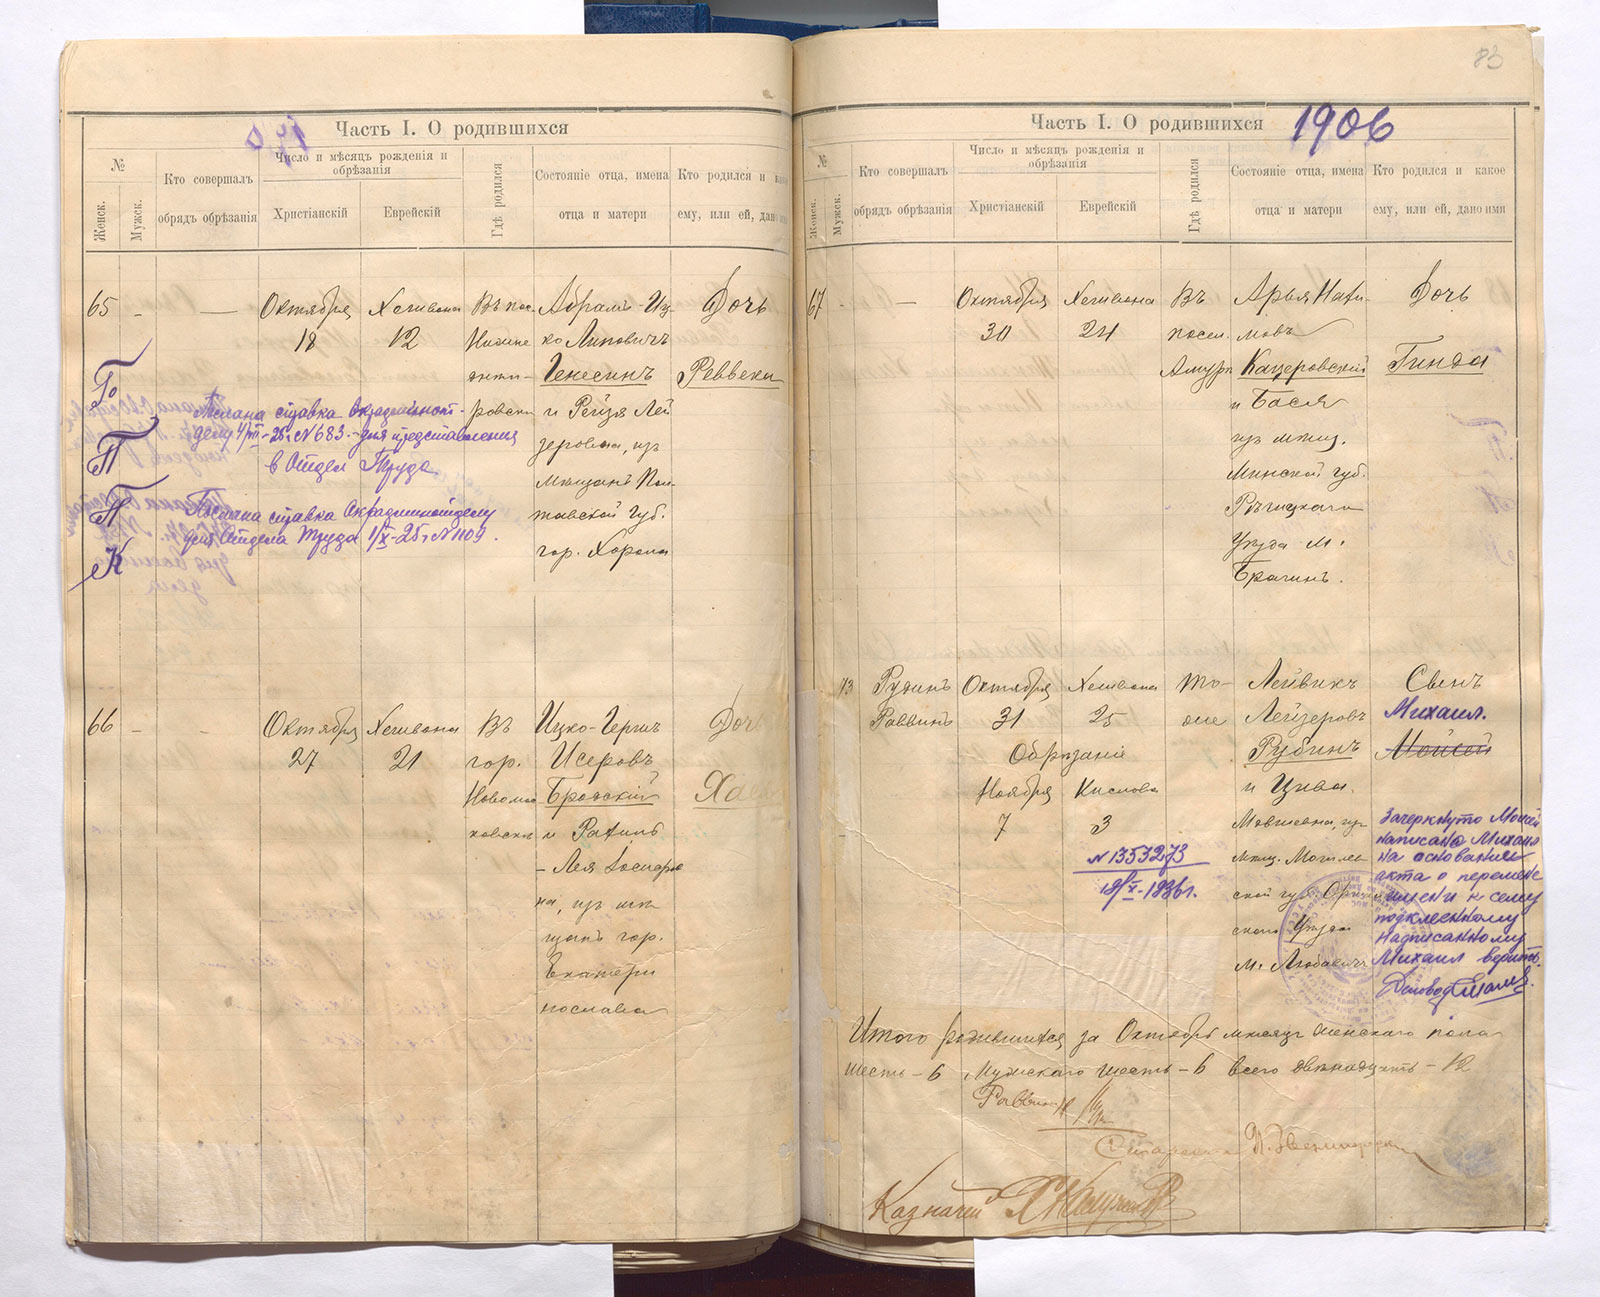 Часть I. О родившихся
№
Женск.
Мужск.
Кто совершалъ
обрядъ обрѣзанія
Число и мѣсяцъ рожденія и
обрѣзанія
Христіанскій
Еврейскій
Гдѣ родился
Состояніе отца, имена
отца и матери
Кто родился и како
ему, или ей, дано имя
65
Октября
18
Хешвона
12
Въ пос.
Нижне
днѣп-
ровски
Абрамъ-Иц-
ко Липовичъ
Генесинъ
и Рейзя Лей
зеровна, изъ
мѣщанъ Пол-
тавской губ.
гор. Хорола
Дочь
Реввека
Го
П
Н
К
в Отдел Труда
для Отдела Труда 1/X-25г N1109.
66
Октября
27
Хешвона
21
Въ
гор.
Новомос
ковскъ
Ицко-Гершъ
Исеровъ
Бродскій
и Рахиль
-Лея
на, изъ мѣ
щанъ гор.
Екатери
нослава
Дочь
Хая
83
Часть I. О родившихся
1906
№
Женск.
Мужск.
Кто совершалъ
обрядъ обрѣзанія
Число и мѣсяцъ рожденія и
обрѣзанія
Христіанскій
Еврейскій
Гдѣ родился
Состояніе отца, имена
отца и матери
Кто родился и какое
ему, или ей, дано имя
67
Октября
30
Хешвона
24
Въ
посел.
Амуръ
Арья Нахи-
мовъ
Кацеровскій
и Бася
изъ мѣщ.
Минской губ.
Рѣчицкаго
уѣзда м.
Брагинъ.
Дочь
Гинда
Рудинъ
Раввинъ
Октября
31
Обрѣзаніе
Ноября
7
Хешвона
25
Кислова
3
То-
же
Лейвикъ
Лейзеровъ
Рубинъ
и Цива
Мовшевна, изъ
мѣщ. Могилев
ской губ. Орш
скаго уѣзда
м. Любавичъ
Сынъ
Михаил.
Мойсей
N 1353273
Зачеркнуто Мойсей
написано Михаил
на основании
акта о перемене
имени к сему
подклеенному
надписанному
Михаил верить.
Деловод
Итого родившихся за Октябрь мѣсяцъ женскаго пола
шесть - 6 Мужскаго шесть - 6 всего двѣнадцать - 12
Раввинъ
Староста
Казначей